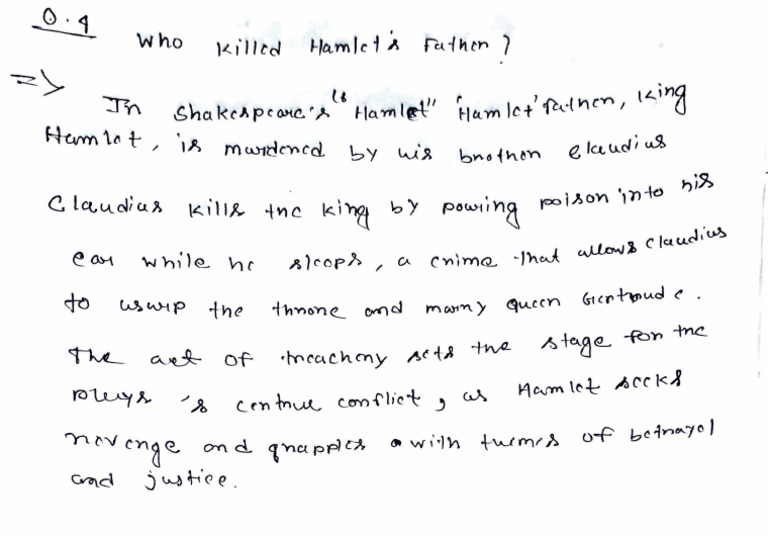 Q.4 Who killed Hamlet's Father?
=> In Shakespeare's "Hamlet" 'Hamlet' father, King
Hamlet, is murdered by his brother Claudius
Claudius kills the king by pouring poison into his
ear while he sleeps, a crime that allows Claudius
to usurp the throne and marry queen Gertrude.
The act of treachery sets the stage for the
plays's central conflict, as Hamlet seeks
revenge and grapples with themes of betrayal
and justice.